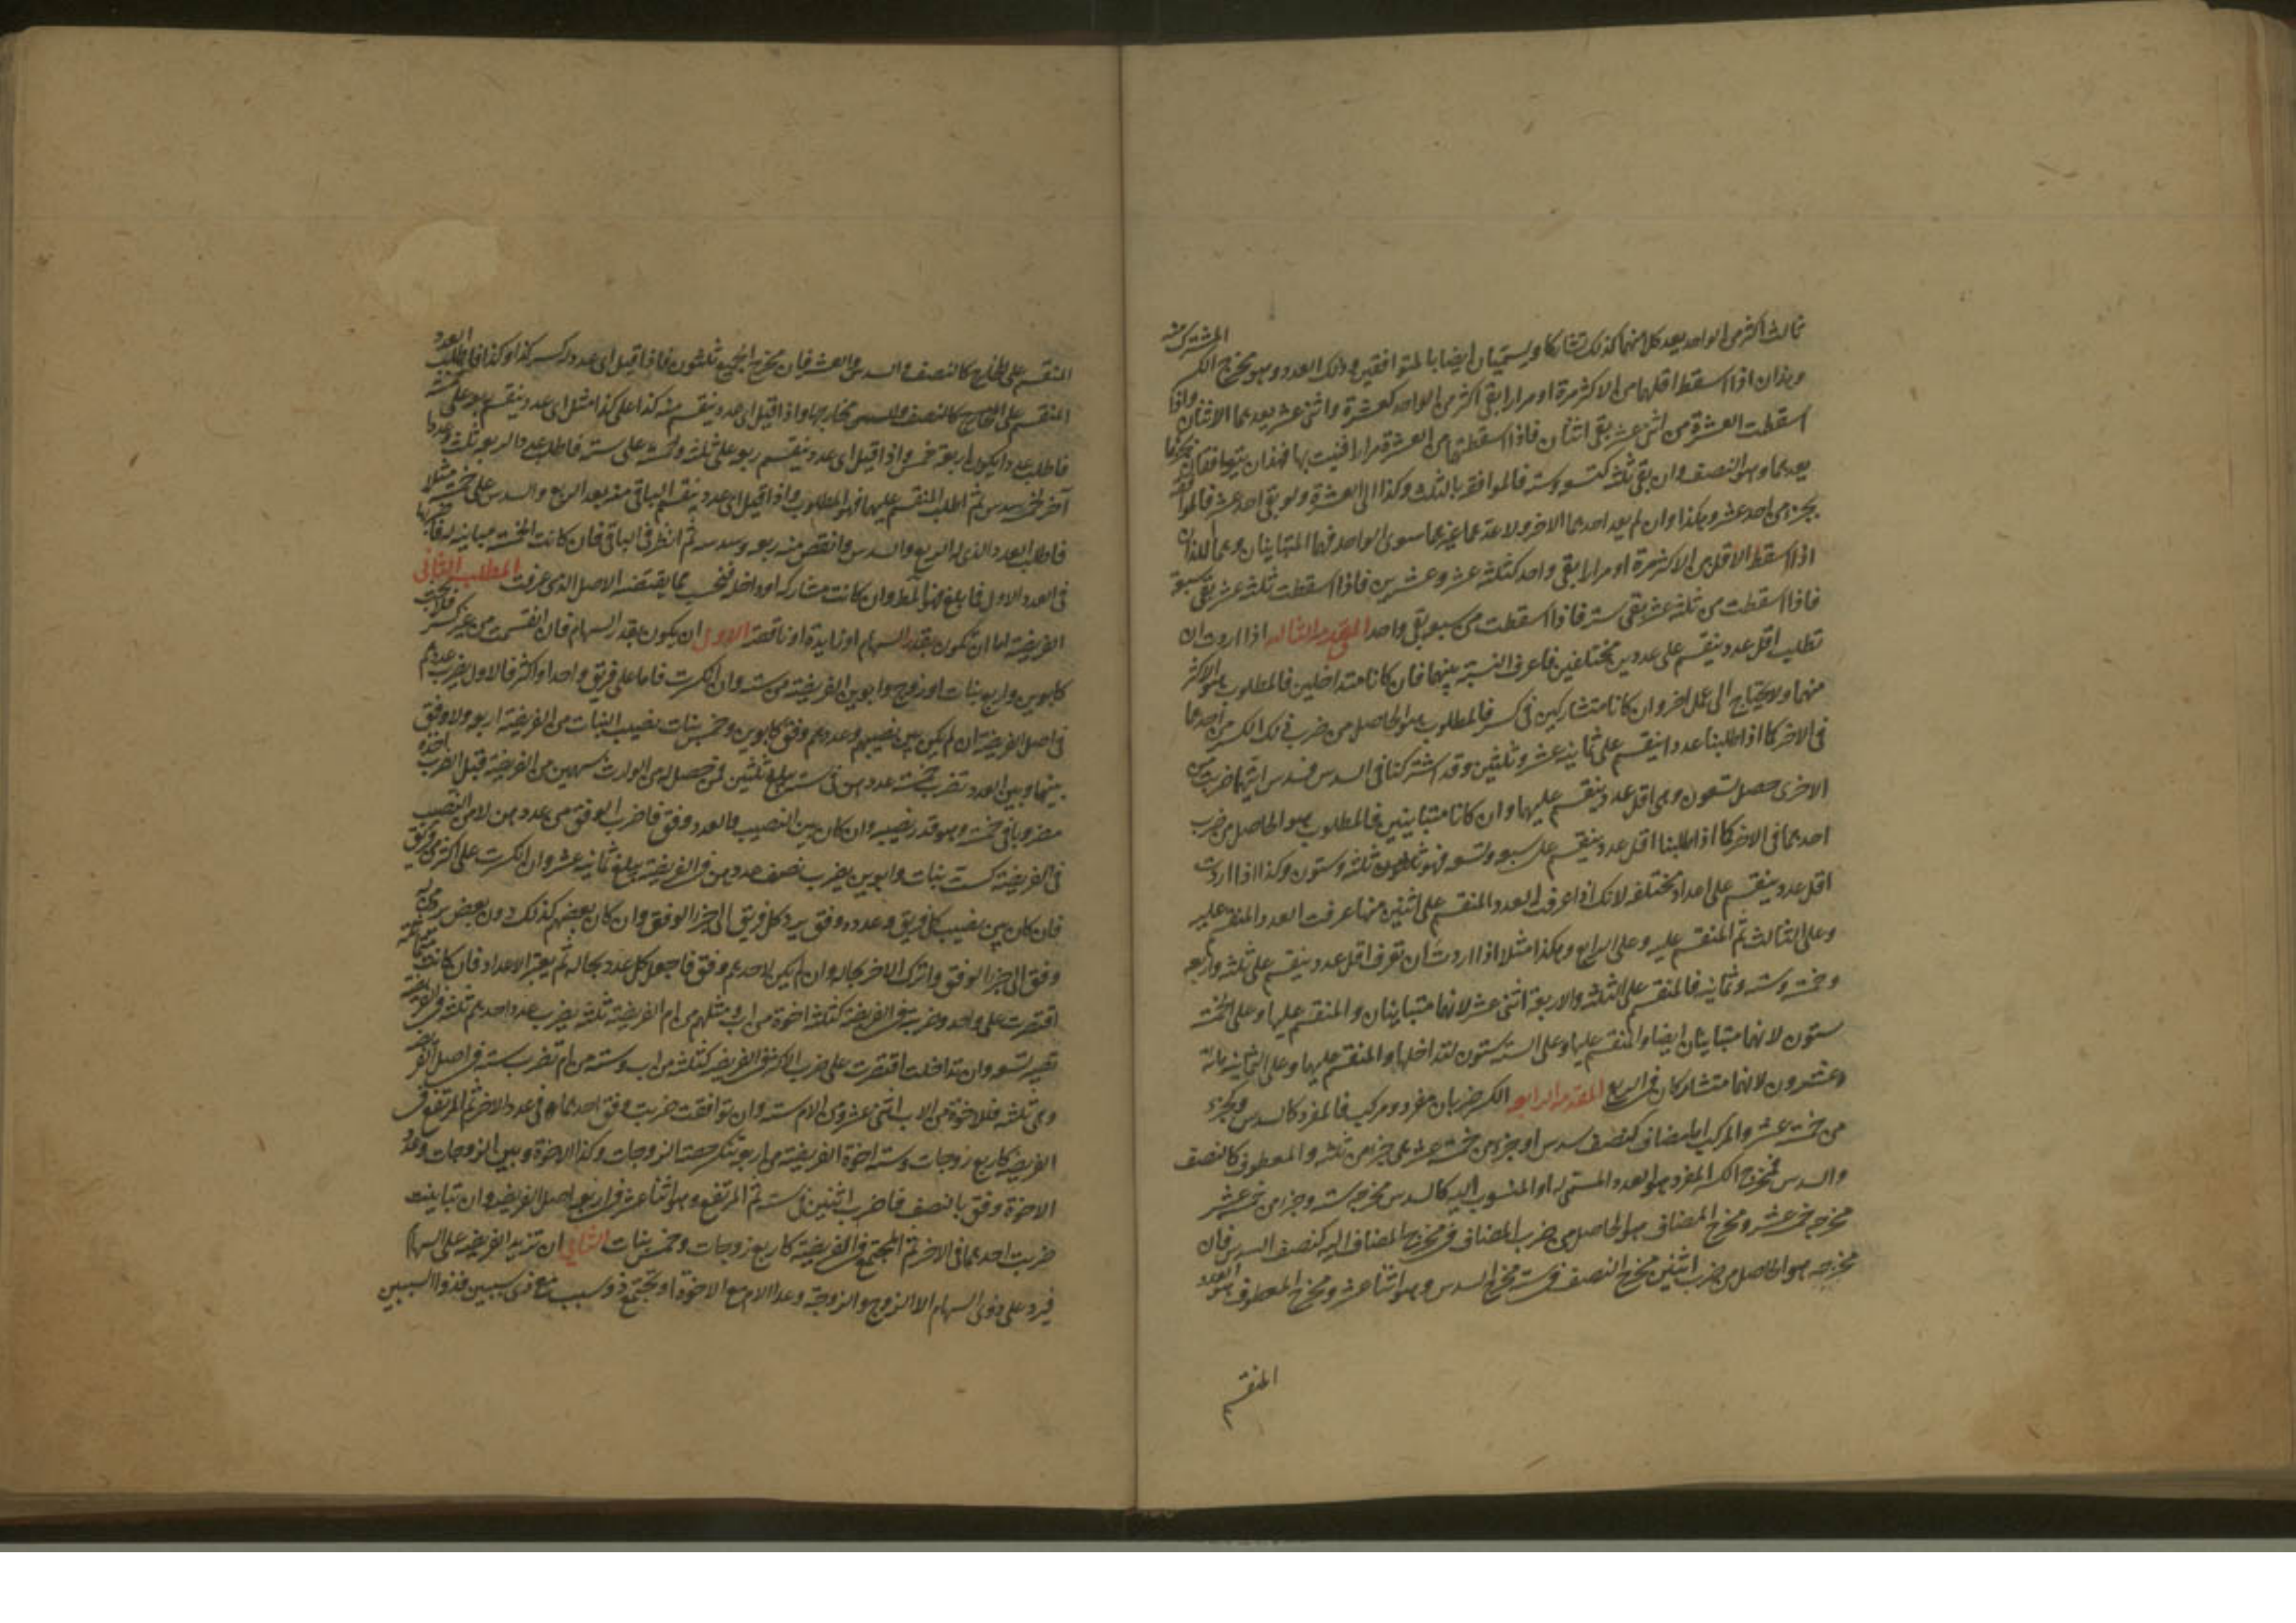 ثالث اكثر من الواحد يعد كلا منهما كذلك تشاركا ويسميان ايضا بالمتوافقين وذلك العدد وهو مخرج الكسر المشترك فيه
وهذان اذا اسقط اقلهما من الاكثر مرة او مرارا بقى اكثر من الواحد كعشرة واثنى عشر يعدهما الاثنان واذا
اسقطت العشرة من اثنى عشر بقى اثنان فاذا اسقطتهما من العشرة مرارا فنيت بها فهذان يتوافقان بجزء ما
يعدهما وهو النصف وان بقى ثلثة كتسعة وستة فالموافقة بالثلث وكذا الى العشرة ولو بقى احد عشر فالموافقة
بجزء من احد عشر وهكذا وان لم يعد احدهما الاخر ولا عدهما غيرهما سوى الواحد فهما المتباينان وهما اللذان
اذا اسقط الاقل من الاكثر مرة او مرارا بقى واحد كثلثة عشر وعشرين فاذا اسقطت ثلثة عشر بقى سبعة
فاذا اسقطت من ثلثة عشر بقى ستة فاذا اسقطت من سبعة بقى واحد المقدمة الثالثة اذا اردت ان
تطلب اقل عدد ينقسم على عددين مختلفين فاعرف النسبة بينهما فان كانا متداخلين فالمطلوب هو الاكثر
منهما ولا يحتاج الى عمل اخر وان كانا متشاركين فى كسر فالمطلوب هو الحاصل من ضرب ذلك الكسر من احدهما
فى الاخر كما اذا طلبنا عددا ينقسم على ثمانية عشر وثلثين وقد اشتركتا فى السدس فسدس ايتهما ضربت فى
الاخرى حصل تسعون وهى اقل عدد ينقسم عليهما وان كانا متباينين فالمطلوب هو الحاصل من ضرب
احدهما فى الاخر كما اذا طلبنا اقل عدد ينقسم على سبعة وتسعة فهو ثلثة وستون وكذا اذا اردت
اقل عدد ينقسم على اعداد مختلفة لانك اذا عرفت العدد المنقسم على اثنين منها عرفت العدد المنقسم عليه
وعلى الثالث ثم المنقسم عليه وعلى الرابع وهكذا مثلا اذا اردت ان تعرف اقل عدد ينقسم على ثلثة واربعة
وخمسة وستة وثمانية فالمنقسم على الثلثة والاربعة اثنى عشر لانهما متباينان والمنقسم عليها وعلى الخمسة
ستون لانهما متباينان ايضا والمنقسم عليها وعلى الستة ستون لتداخلهما والمنقسم عليها وعلى الثمانية مائة
وعشرون لانهما متشاركان فى الربع المقدمة الرابعة الكسر ضربان مفرد ومركب فالمفرد كالسدس وجزء
من خمسة عشر والمركب اما مضاف كنصف سدس او جزء من خمسة عشر من جزء من ثلثة والمعطوف كالنصف
والسدس فمخرج الكسر المفرد هو العدد المسمى له او المنسوب اليه كالسدس مخرجه ستة وجزء من خمسة عشر
مخرجه خمسة عشر ومخرج المضاف هو الحاصل من ضرب المضاف فى مخرج المضاف اليه كنصف السدس فان
مخرجه هو الحاصل من ضرب اثنين مخرج النصف فى ستة مخرج السدس وهو اثنا عشر ومخرج المعطوف هو العدد
المنقسم
المنقسم على المخارج كالنصف والسدس والعشر فان مخرج الجميع ثلثون فاذا قيل اى عدد له كسر كذا وكذا فاطلب العدد
المنقسم على مخارجها واذا قيل اى عدد ينقسم منه كذا على كذا مثل اى عدد ينقسم ربعه على خمسة
فاطلب عددا يكون لربعه خمس واذا قيل اى عدد ينقسم ربعه على ثلثة وخمسه على ستة فاطلب عددا لربعه ثلث وعددا
آخر لخمسه سدس ثم اطلب المنقسم عليهما فهو المطلوب واذا قيل اى عدد ينقسم الباقى منه بعد الربع والسدس على خمسة مثلا
فاطلب العدد الذى له الربع والسدس وانقص منه ربعه وسدسه ثم انظر فى الباقى فان كانت الخمسة مباينة له فاضربها
فى العدد الاول فما بلغ فهو المط وان كانت مشاركة او داخلة فبحسب ما يقتضيه الاصل الذى عرفت المطلب الثانى
الفريضة اما ان تكون بقدر السهام او زايدة او ناقصة الاول ان يكون بقدر السهام فان انقسمت من غير كسر فلا بحث
كابوين واربع بنات او زوج وابوين الفريضة من ستة وان انكسرت فاما على فريق واحد او اكثر فالاول يضرب عددهم
فى اصل الفريضة ان لم يكن بين نصيبهم وعددهم وفق كابوين وخمس بنات نصيب البنات من الفريضة اربعة ولا وفق
بينها وبين العدد تضرب خمسة عددهن فى ستة تبلغ ثلثين فمن حصل له من الوارث سهم من الفريضة قبل الضرب اخذه
مضروبا فى خمسة وهو قدر نصيبه وان كان بين النصيب والعدد وفق فاضرب الوفق من عددهن لا من النصيب
فى الفريضة كست بنات وابوين يضرب نصف عددهن فى الفريضة يبلغ ثمانية عشر وان انكسرت على اكثر من فريق
فان كان بين نصيب كل فريق وعدده وفق يرد كل فريق الى جزء الوفق وان كان بعضهم كذلك دون بعض يرد من له
وفق الى جزء الوفق واترك الاخر بحاله وان لم يكن لاحدهم وفق فاجعل كل عدد بحاله ثم يعتبر الاعداد فان كانت متماثلة
اقتصرت على واحد وضربته فى الفريضة كثلثة اخوة من اب ومثلهم من ام الفريضة ثلثة يضرب عدد احدهم ثلثة فى الفريضة
تصير تسعة وان تداخلت اقتصرت على ضرب الاكثر فى الفريضة كثلثة من اب وستة من ام تضرب ستة فى اصل الفريضة
وهى ثلثة فللاخوة من الاب اثنى عشر ومن الام ستة وان توافقت ضربت وفق احدهما فى عدد الاخر ثم المرتفع فى
الفريضة كاربع زوجات وستة اخوة الفريضة من اربعة تنكسر حصة الزوجات وكذا الاخوة وبين الزوجات وعدد
الاخوة وفق بالنصف فاضرب اثنين فى ستة ثم المرتفع وهو اثنا عشر فى اربعة اصل الفريضة وان تباينت
ضربت احدهما فى الاخر ثم المجتمع فى الفريضة كاربع زوجات وخمس بنات الثانى ان تزيد الفريضة على السهام
فيرد على ذوى السهام الا الزوج والزوجة وعدا الام مع الاخوة او يجتمع ذو سبب مع ذى سببين فذو السببين